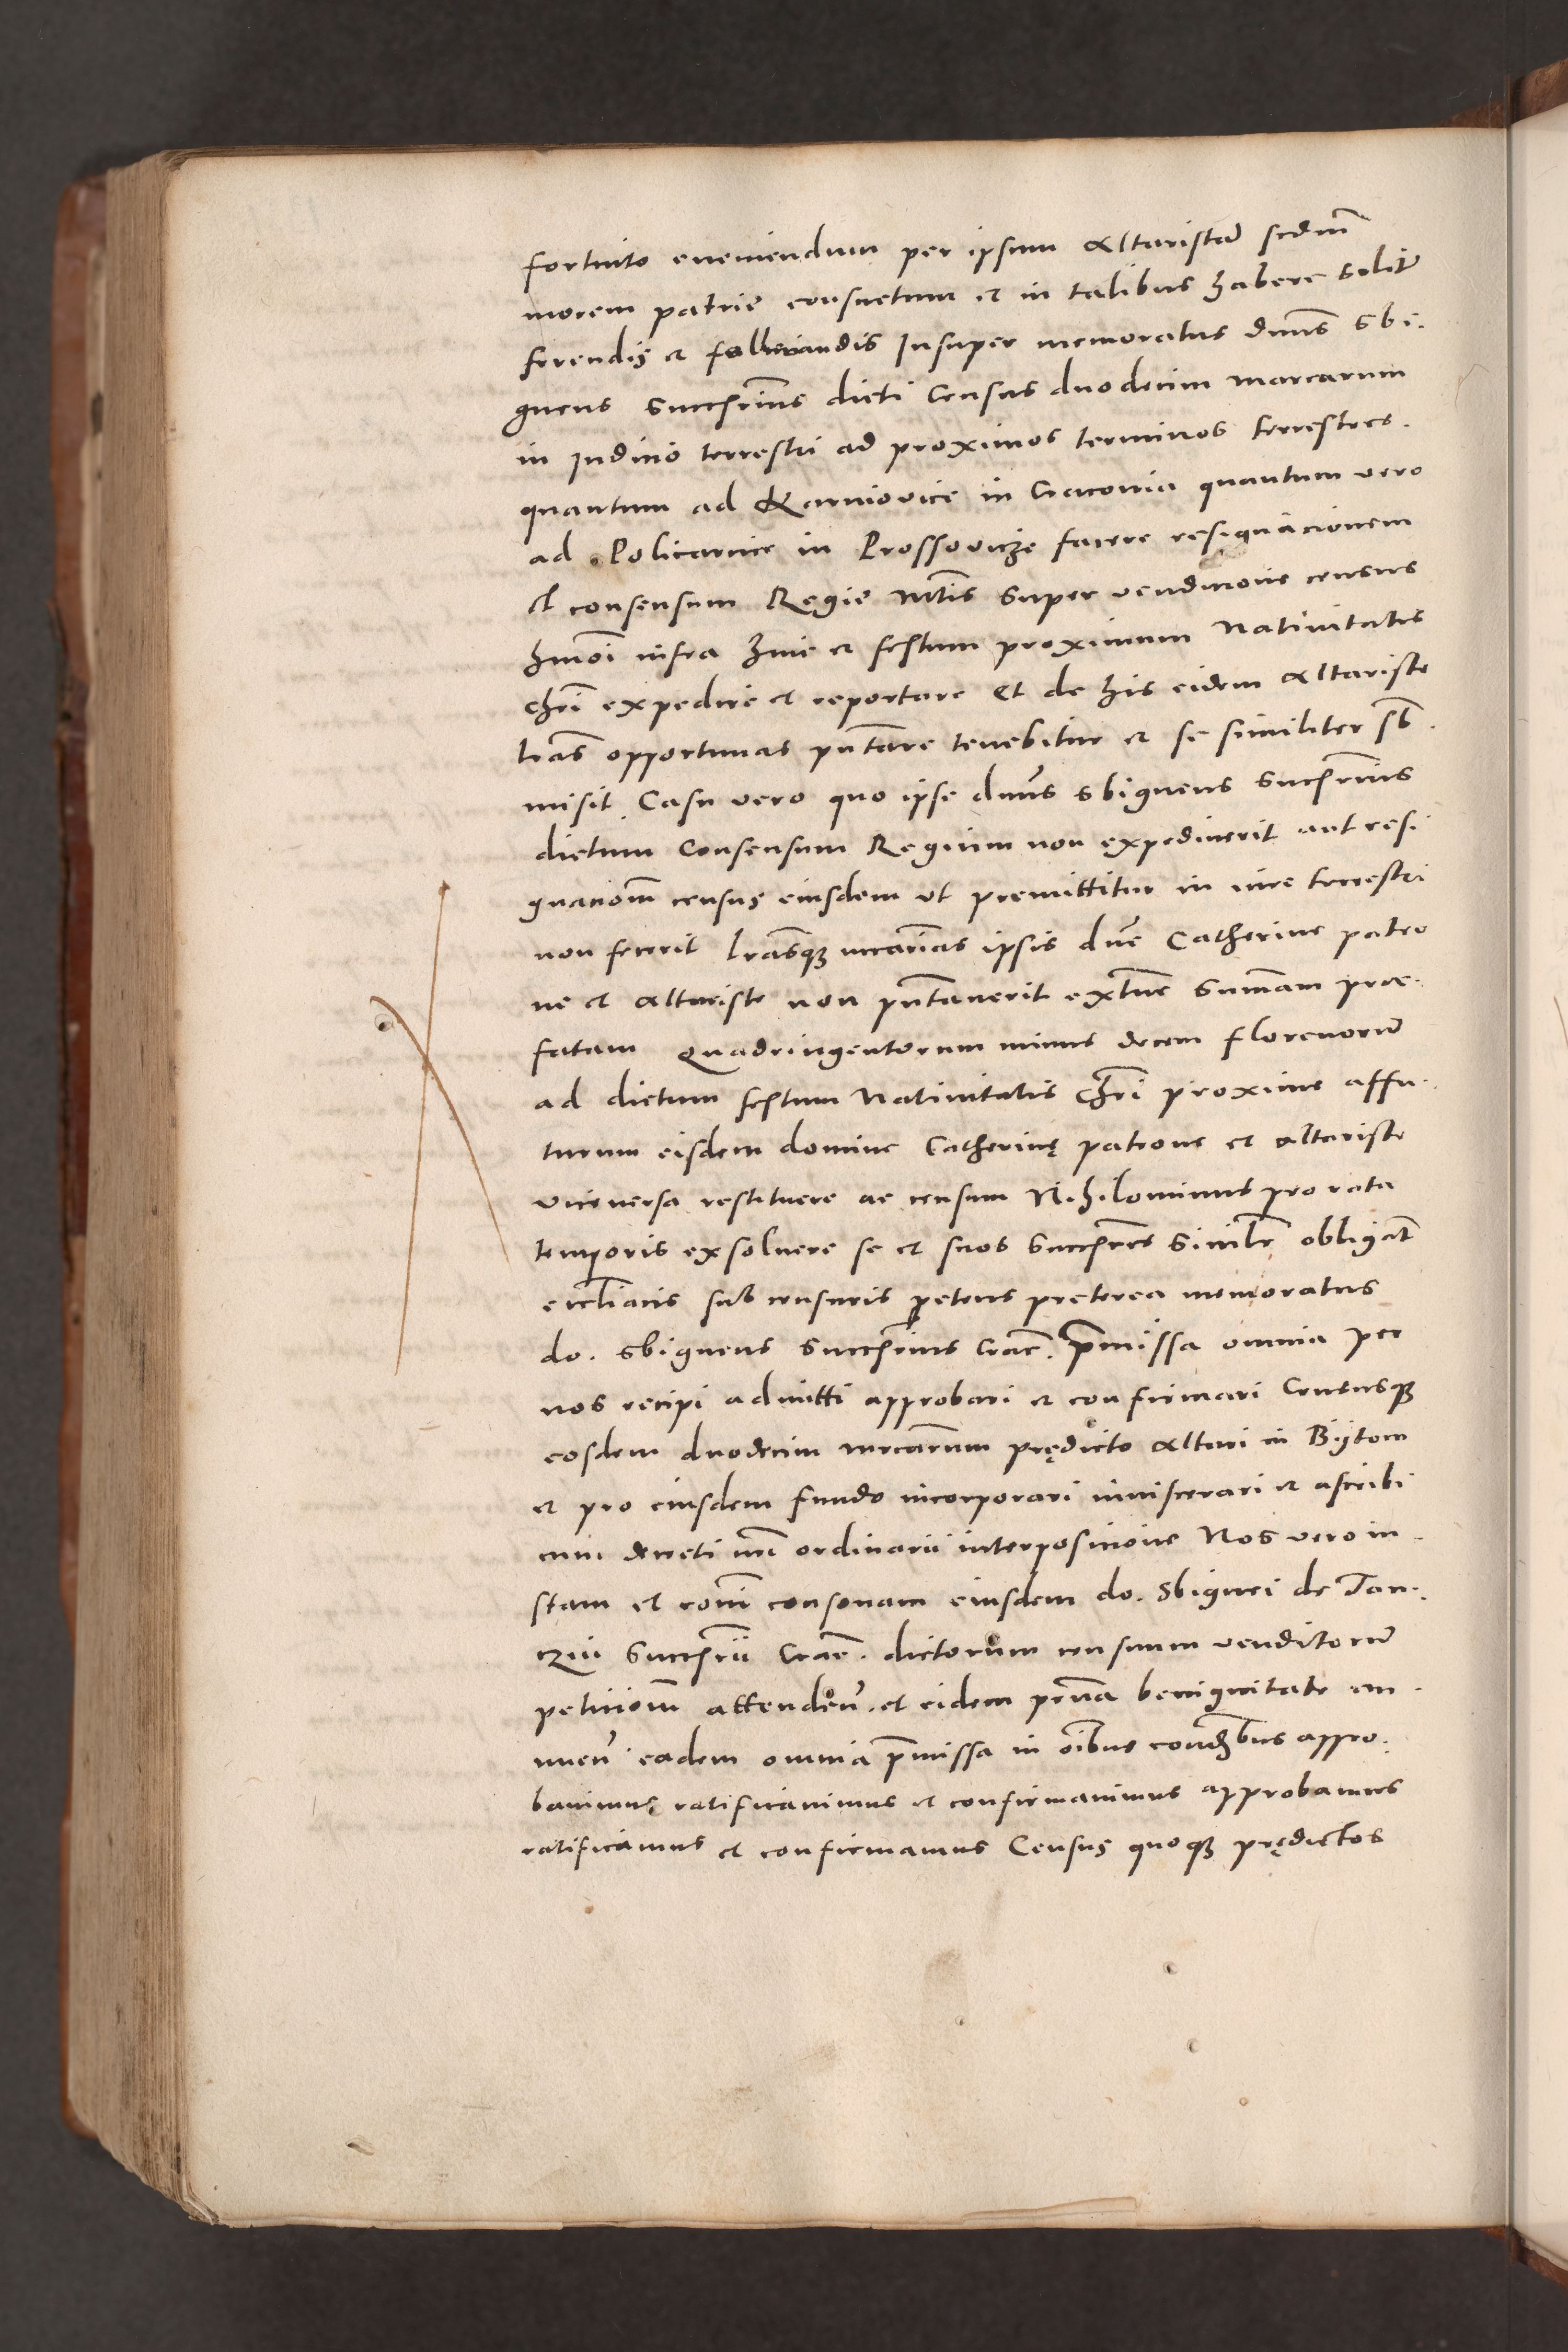 fortuito eveniendum per ipsum Altaristam scdm̄
morem patrie consuetum et in talibus habere solitum
ferendis et tollerandis Insuper memoratus dnūs Sbi-
gneus Succ̄rius dicti Census duodecim marcarum
in Judicio terrestri ad proximos terminos terrestres.
quantum ad Karniovice in Cracovia quantum vero
ad Policarcice in Prossovicze facere resignacionem
Et consensum Regie Mtīs super vendicione census
hmōi infra hinc et festum proximum Nativitatis
Chrī expedire et reportare Et de his eidem Altariste
lrās opportunas pn̄tare tenebitur et se similiter sb̄-
misit. Casu vero quo ipse dnūs Sbigneus Succ̄rius
dictum Consensum Regium non expediverit aut resi
gnacionem census eiusdem ut premittitur in iure terrestri
non fecerit lrāsq; necārias ipsis dn̄e Catherine patro
ne et altariste non pn̄taverit extunc summam prae-
fatam Quadringentorum minus decem florenorum
ad dictum festum Nativitatis Chrī proxime affu-
turum eisdem domine Catherinę patrone et altariste
viceversa restituere ac censum Nihilominus pro rata
temporis exsolvere se et suos Succ̄res Similr̄ obligavit
ecclīacis sub censuris petens preterea memoratus
do. Sbigneus Succ̄rius Crac̄. p̄missa omnia per
nos recipi admitti approbari et confirmari Censusq;
eosdem duodecim mrcārum prędicto Altari in Bijtom
et pro eiusdem fundo incorporari inviscerari et ascribi
cum decreti nr̄i ordinarii interposicione Nos vero iu-
stam et rōni consonam eiusdem do. Sbignei de Tan-
czin Succ̄rii Crac̄. dictorum censuum venditorum
peticionem attenden̄. et eidem prn̄a benignitate an-
nuen̄ eadem omnia p̄missa in oībus cond̄bus appro-
bavimus ratificavimus et confirmavimus approbamus
ratificamus et confirmamus Census quoq; prędictos